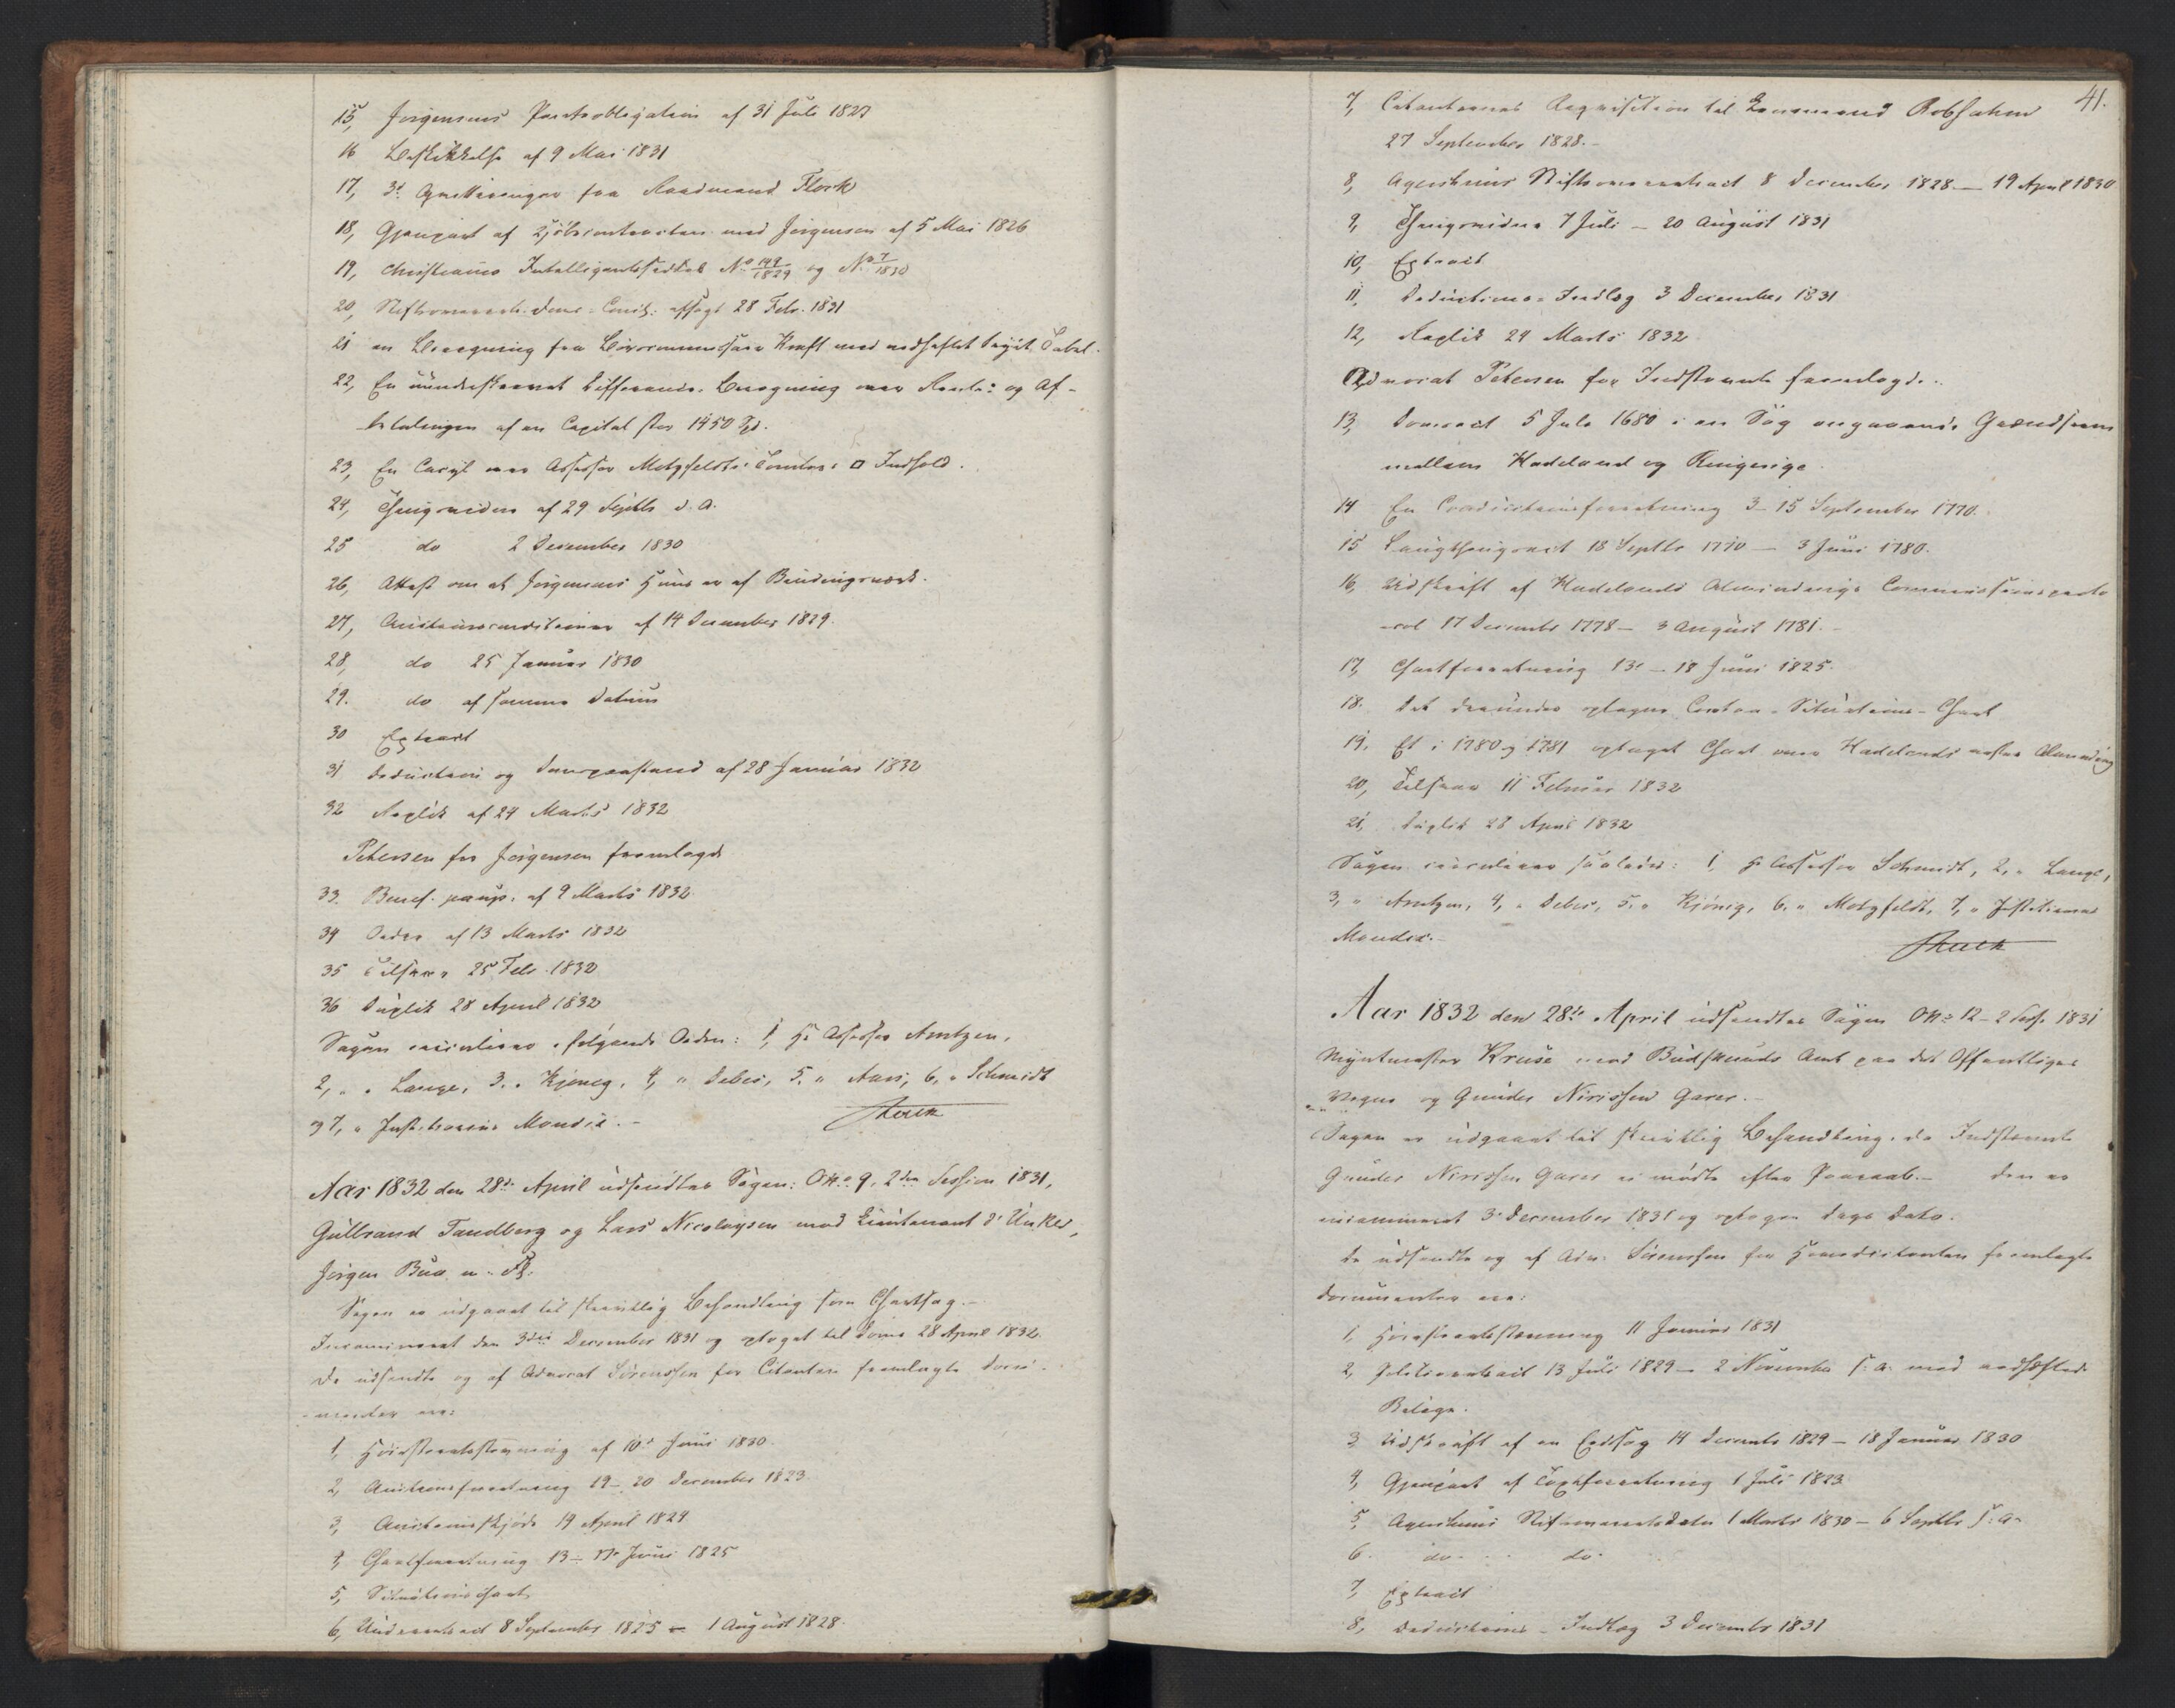 15, Jørgensens Panteobligation af 31 Juli 1827
16 Beskikkelse af 9 Mai 1831
17, 3de Qvitteringer fra Raadmand Flock
18, Gjenpart af Kjøbecontracten med Jørgensen af 5 Mai 1826
19, Christiania Intelligentssedler No 149/1829 og No 7/1830
20, Stiftsoverrets Dom afsagt 28 Febr. 1831
21 en Beregning fra med vedheftet Tabel.
22, En Differents Beregning over Rente- og Af-
betalingen af en Capital stor 1450 Spd.
23, En over Assessor Motzfeldts Tomters □ Indhold.
24, Thingsvidne af 29 Septbr d. A.
25 do 2 December 1830
26, Attest om at Jørgensens Huus er af Bindingsværk.
27, Auctionsconditioner af 14 December 1829.
28, do 25 Januar 1830
29. do af samme Datum
30 Extract
31 Deduction og Dompaastand af 28 Januar 1832
32 Replik af 24 Marts 1832
Petersen for Jørgensen fremlagde
33. Benef. paup. af 9 Marts 1832
34 Ordre af 13 Marts 1832
35 Tilsvar 25 Febr. 1832
36 Duplik 28 April 1832
Sagen circulerer i følgende Orden: 1, Hr Assessor Arntzen,
2, " " Lange, 3. " Kjønig, 4, " Debes, 5. " Aars, 6, " Schmidt
og 7, " Justitiarius Mandix.-
Aar 1832 den 28de April udsendtes Sagen: O No 9, 2den Session 1831,
Gulbrand Tandberg og Lars Nicolaysen mod Lieutenant d'Unker,
Jørgen Bua m. Fl.
Sagen er udgaaet til skriftlig Behandling som Chartsag.-
Incamineret den 3die December 1831 og optaget til Doms 28 April 1832.
De udsendte og af Advocat Sørenssen for Citanten fremlagte Docu-
menter ere:
1, Høiesteretsstævning af 10de Juni 1830.
2, Auctionsforretning 19-20 December 1823.
3, Auctionsskjøde 19 April 1824
4, Chartforretning 13- Juni 1825
5, Situationschart
6, Underretsact 8 September 1825 - 1 August 1828.
41.
7, Citanternes Reqvisition til Lensmand Robsahm
27 September 1828.-
8, Agershuus Stiftsoverretsact 8 December 1828 - 19 April 1830
9, Thingsvidne 7 Juli - 20 August 1831
10, Extract
11, Deductions-Indlæg 3 December 1831
12, Replik 24 Marts 1832
Advocat Petersen for Indstævnte fremlagde.
13, Domsact 5 Juli 1680 i en Sag angaaende Grændserne
mellem Hadeland og Ringerige.
14 En Conductionsforretning 3-15 September 1770.
15 Laugthingsact 18 Septbr 1770 - 3 Juni 1780.
16, Udskrift af Hadelands Alminding Commissionsproto
-col 17 Decembr 1778 - 3 August 1781.-
17, Chartforretning 13 - 18 Juni 1825.
18. Det derunder optagne Contra-Situations-Chart
19, Et i 1780 og 1781 optaget Chart over Hadelands vestre Alminding
20, Tilsvar 11 Februar 1832
21, Duplik 28 April 1832
Sagen circulerer saaledes: 1, Hr Assessor Schmidt, 2, " Lange,
3, " Arntzen, 4, " Debes, 5. " Kjønig, 6. " Motzfeldt, 7, " Justitiarius
Mandix.-
Aar 1832 den 28de April udsendtes Sagen O No 12 - 2 Sess. 1831
Myntmester Kruse mod Budskeruds Amt paa det Offentliges
Vegne og Gunder Nirissen Garer.-
Sagen er udgaaet til skriftlig Behandling, da Indstævnte
Gunder Nirissen Garer ei mødte efter Paaraab.- Den er
incamineret 3 December 1831 og optagen Dags Dato.
De udsendte og af Adv. Sørenssen for Hovedcitanten fremlagte
Documenter ere:
1, Høiesteretsstævning 11 Januar 1831
2, Politieretsact 13 Juli 1829 - 2 November s. A. med vedheftede
Bilage.
3, Udskrift af en Eedsag 14 Decembr 1829 - 18 Januar 1830
4, Gjenpart af Taxtforretning 1 Juli 1823
5, Agershuus Stiftsoverretsacter 1 Marts 1830 - 6 Septbr s. A.
6. do do
7, Extract
8, Deductions-Indlæg 3 Decembr 1831